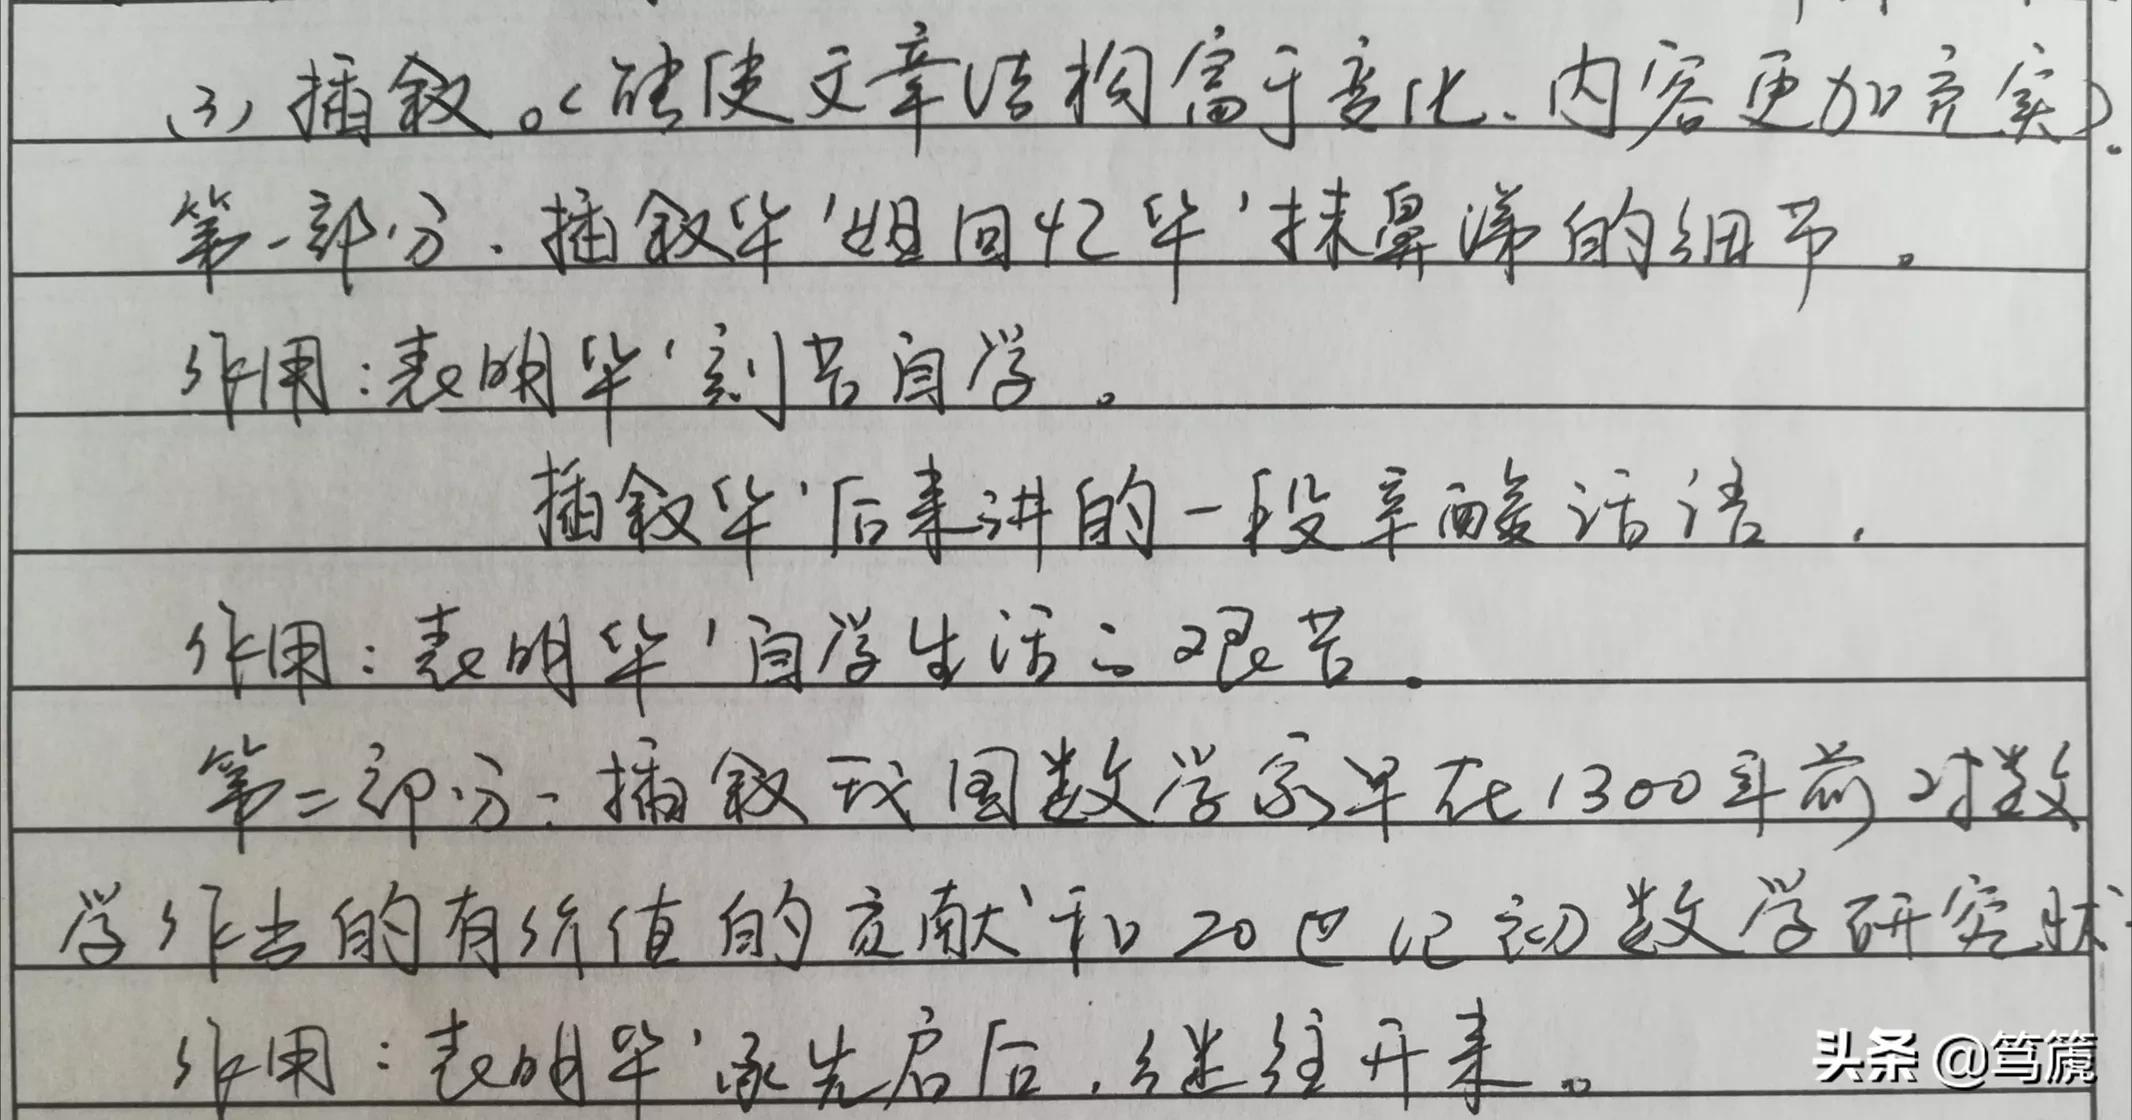 (3)插叙。(能使文章结构富于变化、内容更加充实).
第一部分.插叙华'姐回忆华'抹鼻涕的细节。
作用:表明华'刻苦自学。
插叙华'后来讲的一段辛酸话语.
作用:表明华'自学生活之艰苦.
第二部分:插叙我国数学家早在1300年前对数
学作出的有价值的贡献和20世纪初数学研究状
作用:表明华'承先启后,继往开来。
头条@笃篪